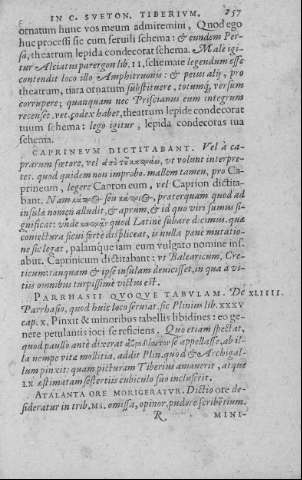 IN C. SVETON. TIBERIVM. 257
ornatum hunc vos meum admiremini, Quod ego
huc processi sic cum servili schema: & eundem Per-
sa, theatrum lepida condecorat schema. Male igi-
tur Alciatus parergon lib. 11, schemate legendum esse
contendit loco illo Amphitruonis: & peius alij, pro
theatrum, tiara ornatum substituere, totumq; versum
corrupere: quanquam nec Priscianus eum integrum
recenset. vet. codex habet, theatrum lepide condecorat
tuum schema: lego igitur, lepida condecoras tua
schema.
CAPRINEVM DICTITABANT. Vel à ca-
prarum fœtore, vel ut volunt interpre-
tes. quod quidem non improbo. mallem tamen, pro Ca-
prineum, legere Capron eum, vel Caprion dictita-
bant. Nam seu præterquam quod ad
insulæ nomen alludit, & aprum, & id quo viri sumus si-
gnificat: unde quod Latinè subare dicimus. quæ
coniectura si cui fortè displiceat, is nulla pene mutatio-
ne sic legat, palamque iam eum vulgato nomine ins.
abut. Caprinicum dictitabant: ut Balearicum, Cre-
ticum: tanquam & ipse insulam devicisset, in qua à vi-
tiis omnibus turpissimè victus est.
PARRHASII QVOQVE TABVLAM. De XLIIII.
Parrhasio, quod huic loco serviat, sic Plinius lib. XXXV
cap. X, Pinxit & minoribus tabellis libidines: eo ge-
nere petulantis ioci se reficiens, Quo etiam spectat,
quod paullo antè dixerat se appellasse, ab il-
la nempe vitæ mollitia. addit Plin. quod & Archigal-
lum pinxit: quam picturam Tiberius amaverit, atque
LX æstimatam sestertiis cubiculo suo incluserit.
ATALANTA ORE MORIGERATVR. Dictio ore de-
sideratur in trib. MS. omissa, opinor, pudore scribētium.
R. MINI-